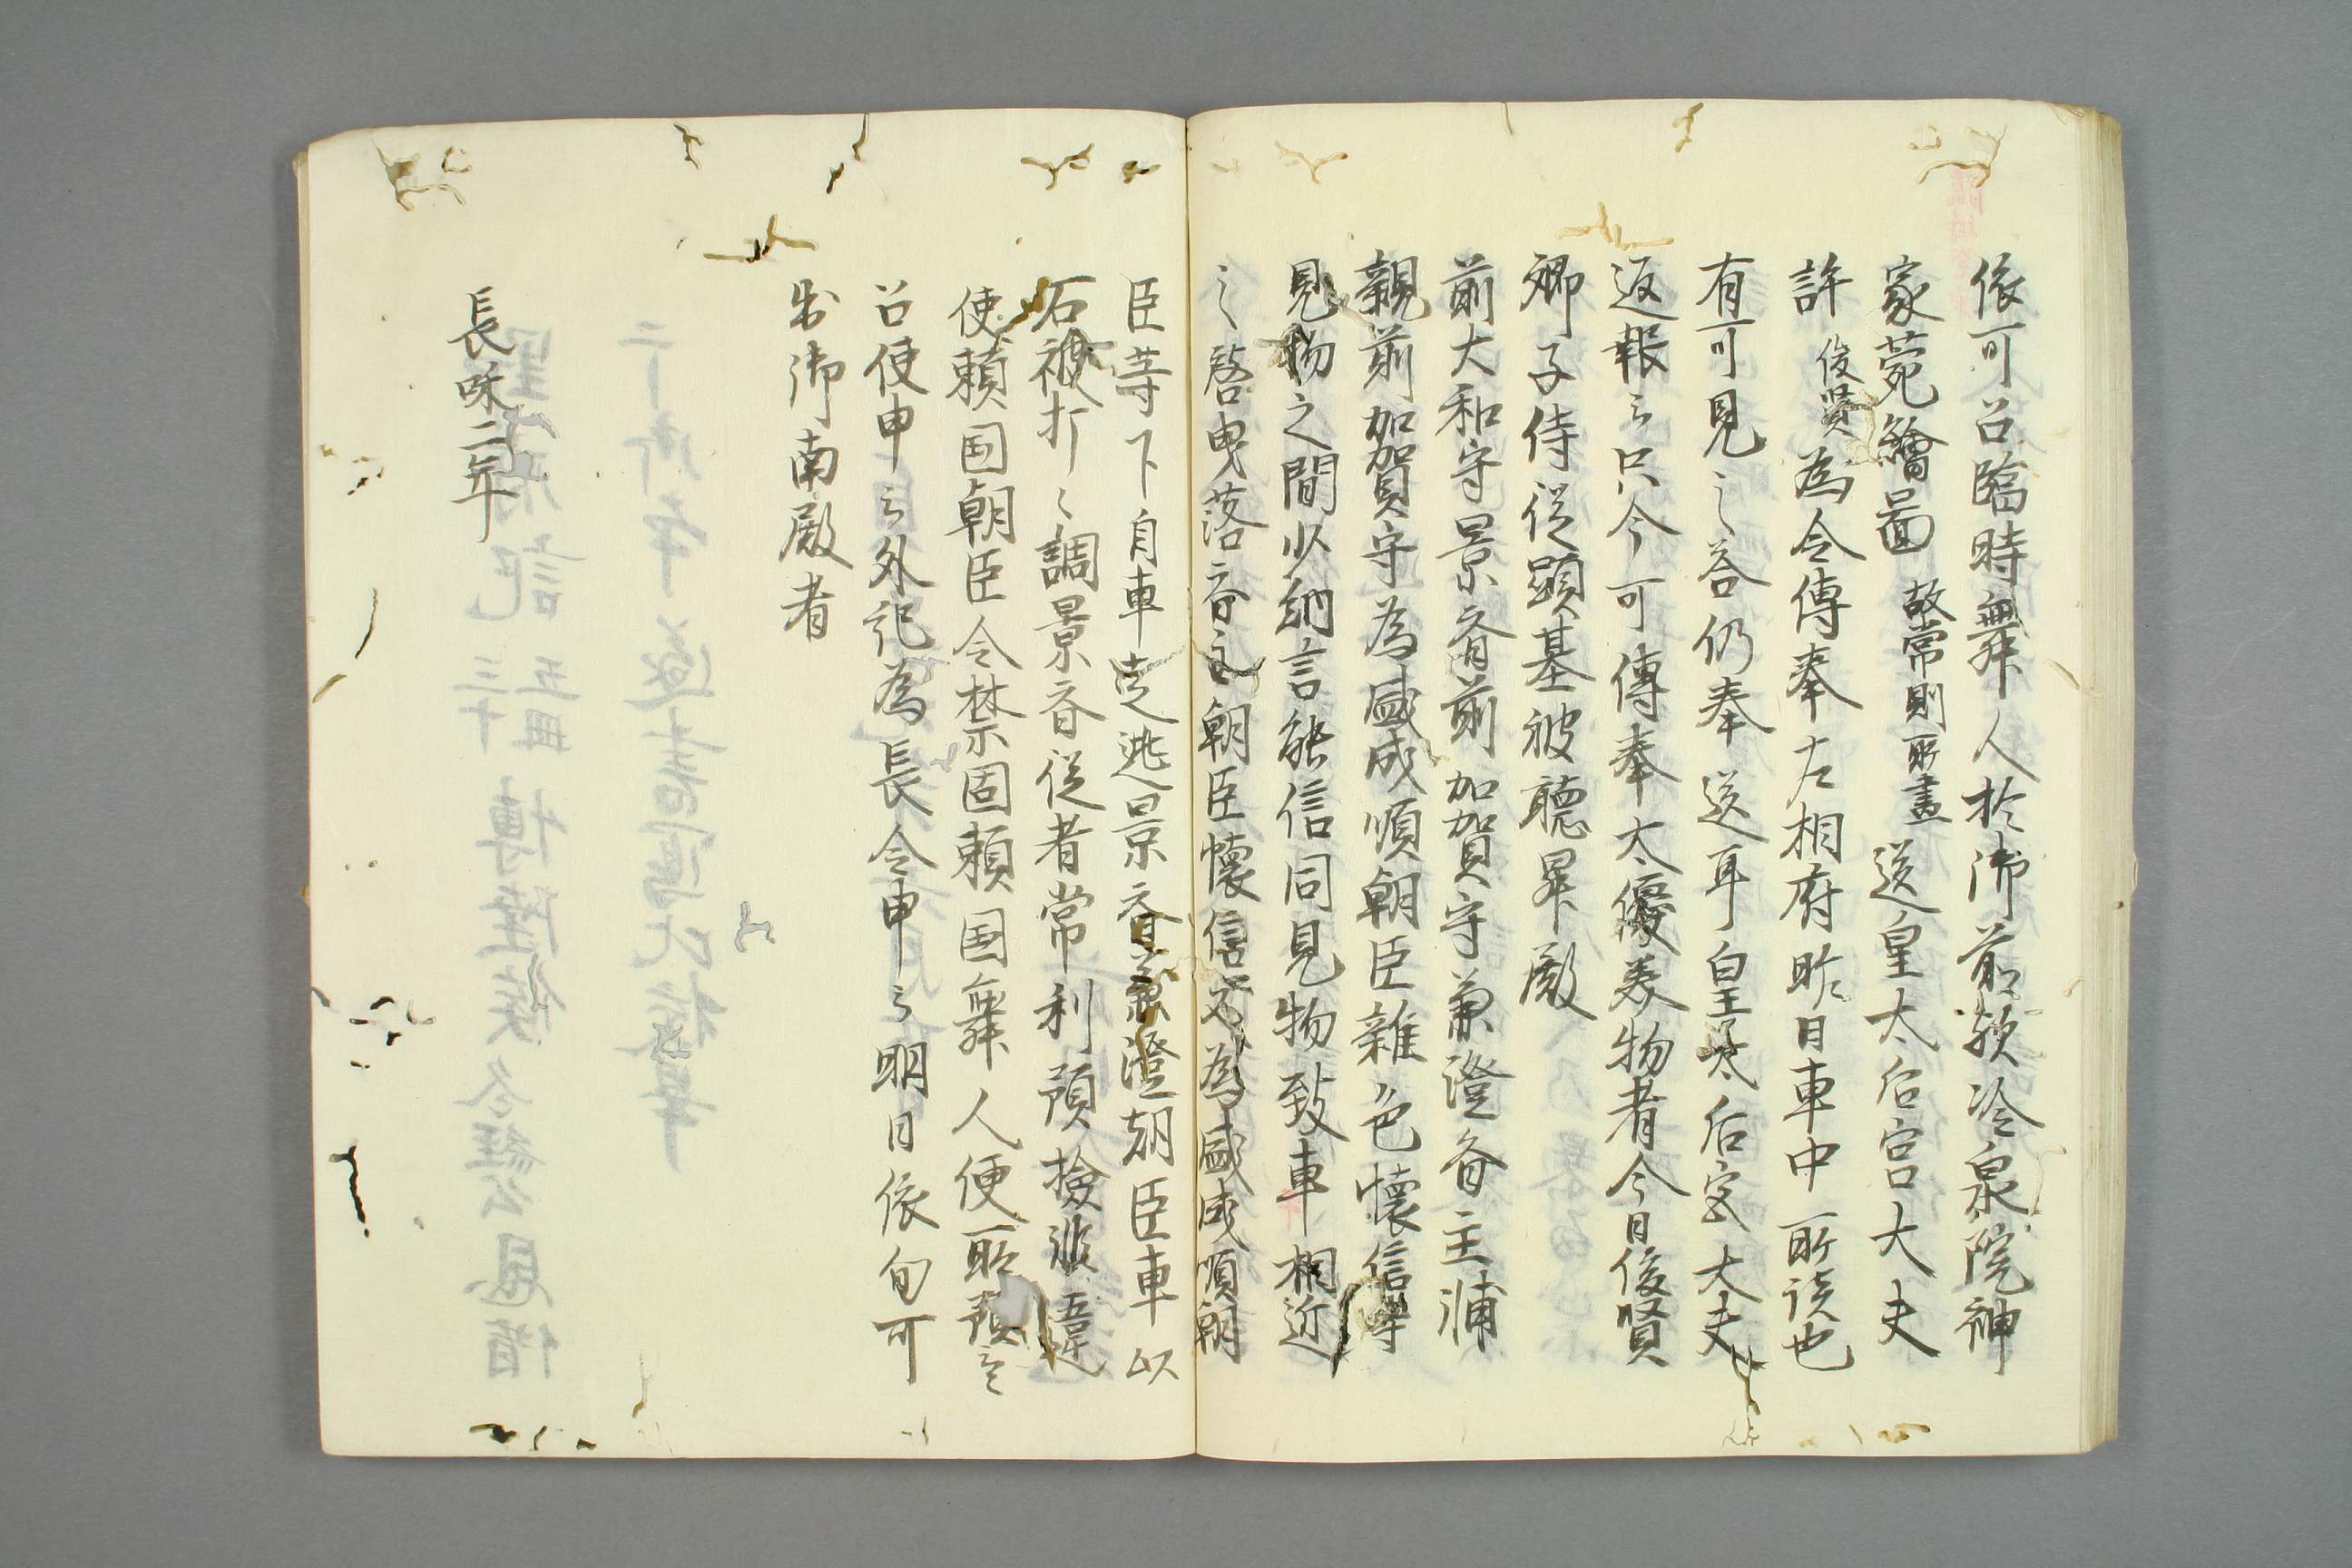 依可召臨時舞人於御前歟冷泉院神
家菀繪啚故常則所畫送皇太后宮大夫
許俊賢為令傳奉左相府昨日車中所談也
有可見之荅仍奉送耳皇太后宮大夫
返報云只今可傳奉太優美物者今日俊賢
卿子侍從顕基被聴昇殿
前大和守景斉前加賀守兼澄斉主輔
親前加賀守為盛成順朝臣雑色懐信等
見物之間以納言能信同見物致車相近
之啓曳落斉主朝臣懐信又為盛成順朝
臣等下自車走逃景斉兼澄朝臣車以
石被打々調景斉従者常利預撿非違
使頼国朝臣令禁固頼国舞人便所預云
召使申云外記為長令申云明日依旬可
出御南殿者
長和二年